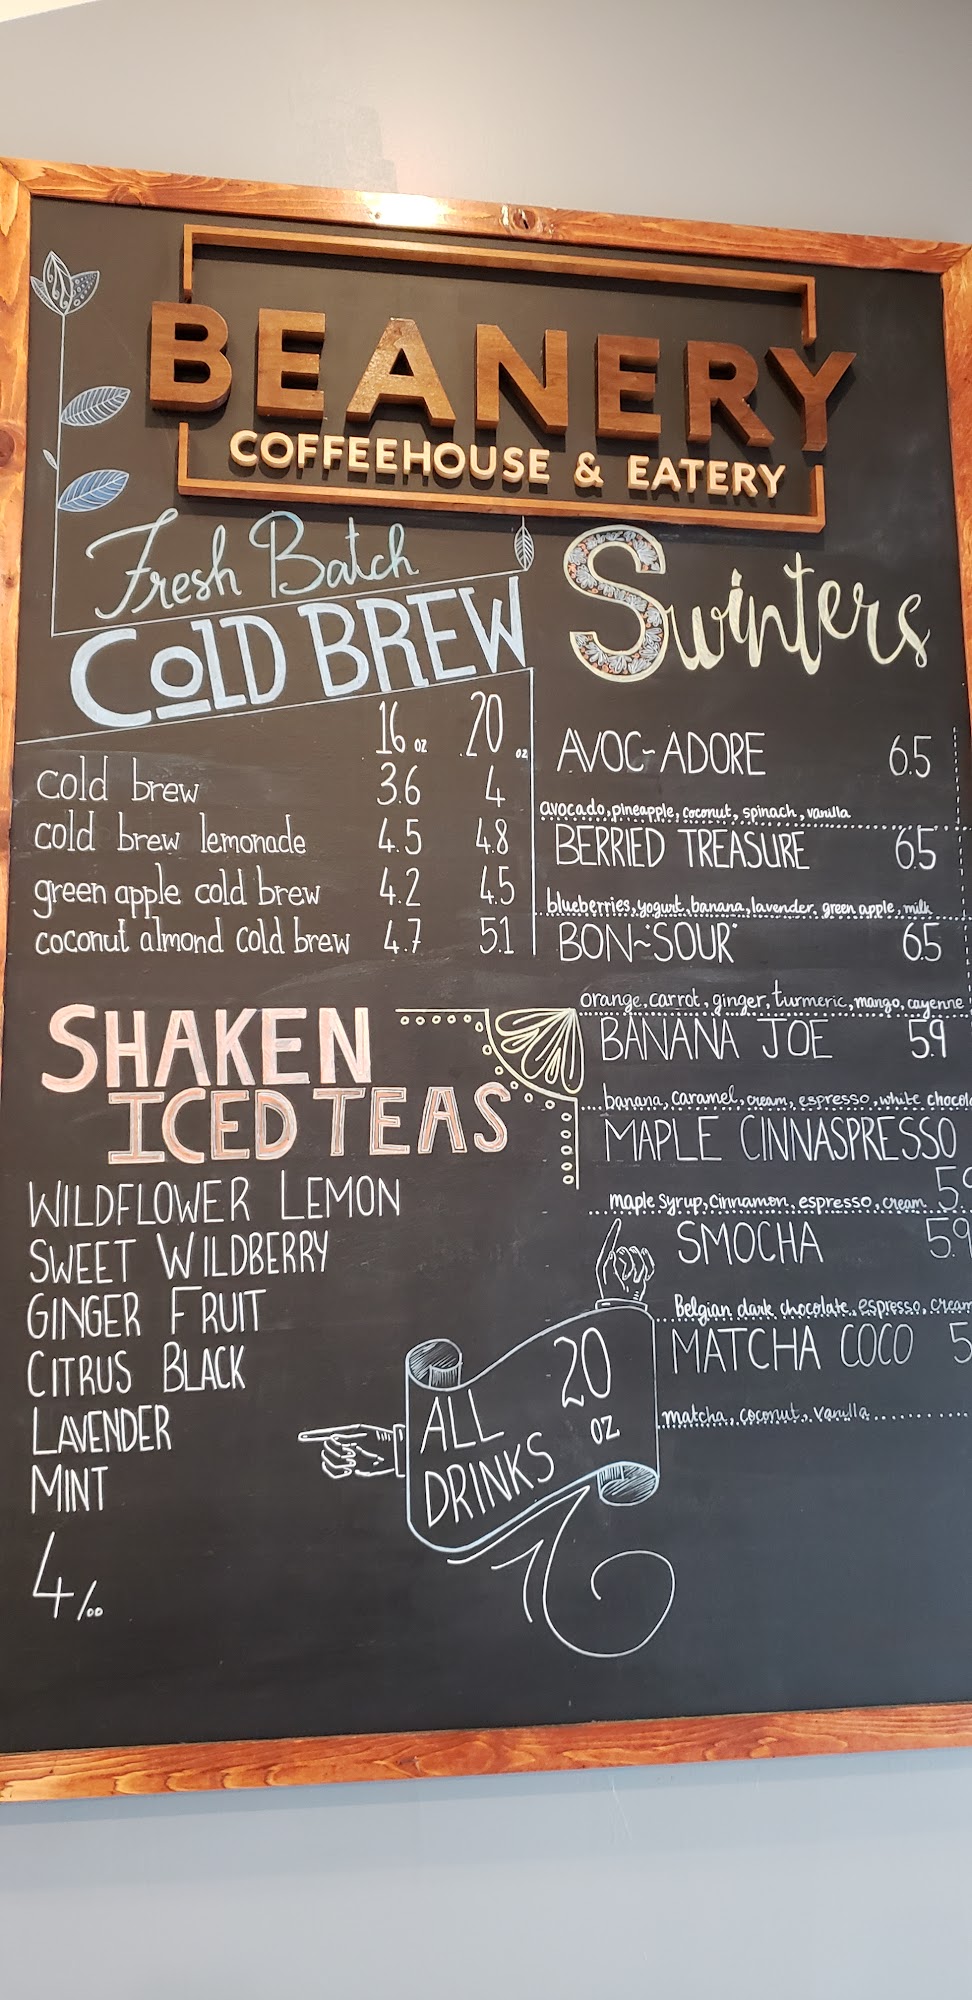 BEANERY
COFFEEHOUSE & EATERY
Fresh Batch
COLD BREW
16 oz 20 oz
cold brew 3.6 4
cold brew lemonade 4.5 4.8
green apple cold brew 4.2 4.5
coconut almond cold brew 4.7 5.1
SHAKEN
ICED TEAS
WILDFLOWER LEMON
SWEET WILDBERRY
GINGER FRUIT
CITRUS BLACK
LAVENDER
MINT
4/00
Swinters
AVOC~ADORE 6.5
avocado, pineapple, coconut, spinach, vanilla
BERRIED TREASURE 6.5
blueberries, yogurt, banana, lavender, green apple, milk
BON~"SOUR" 6.5
orange, carrot, ginger, turmeric, mango, cayenne
BANANA JOE 5.9
banana, caramel, cream, espresso, white
MAPLE CINNASPRESSO
maple syrup, cinnamon, espresso, cream
SMOCHA 5.9
Belgian dark chocolate, espresso, cream
MATCHA COCO
matcha, coconut, vanilla
ALL
DRINKS
20
OZ